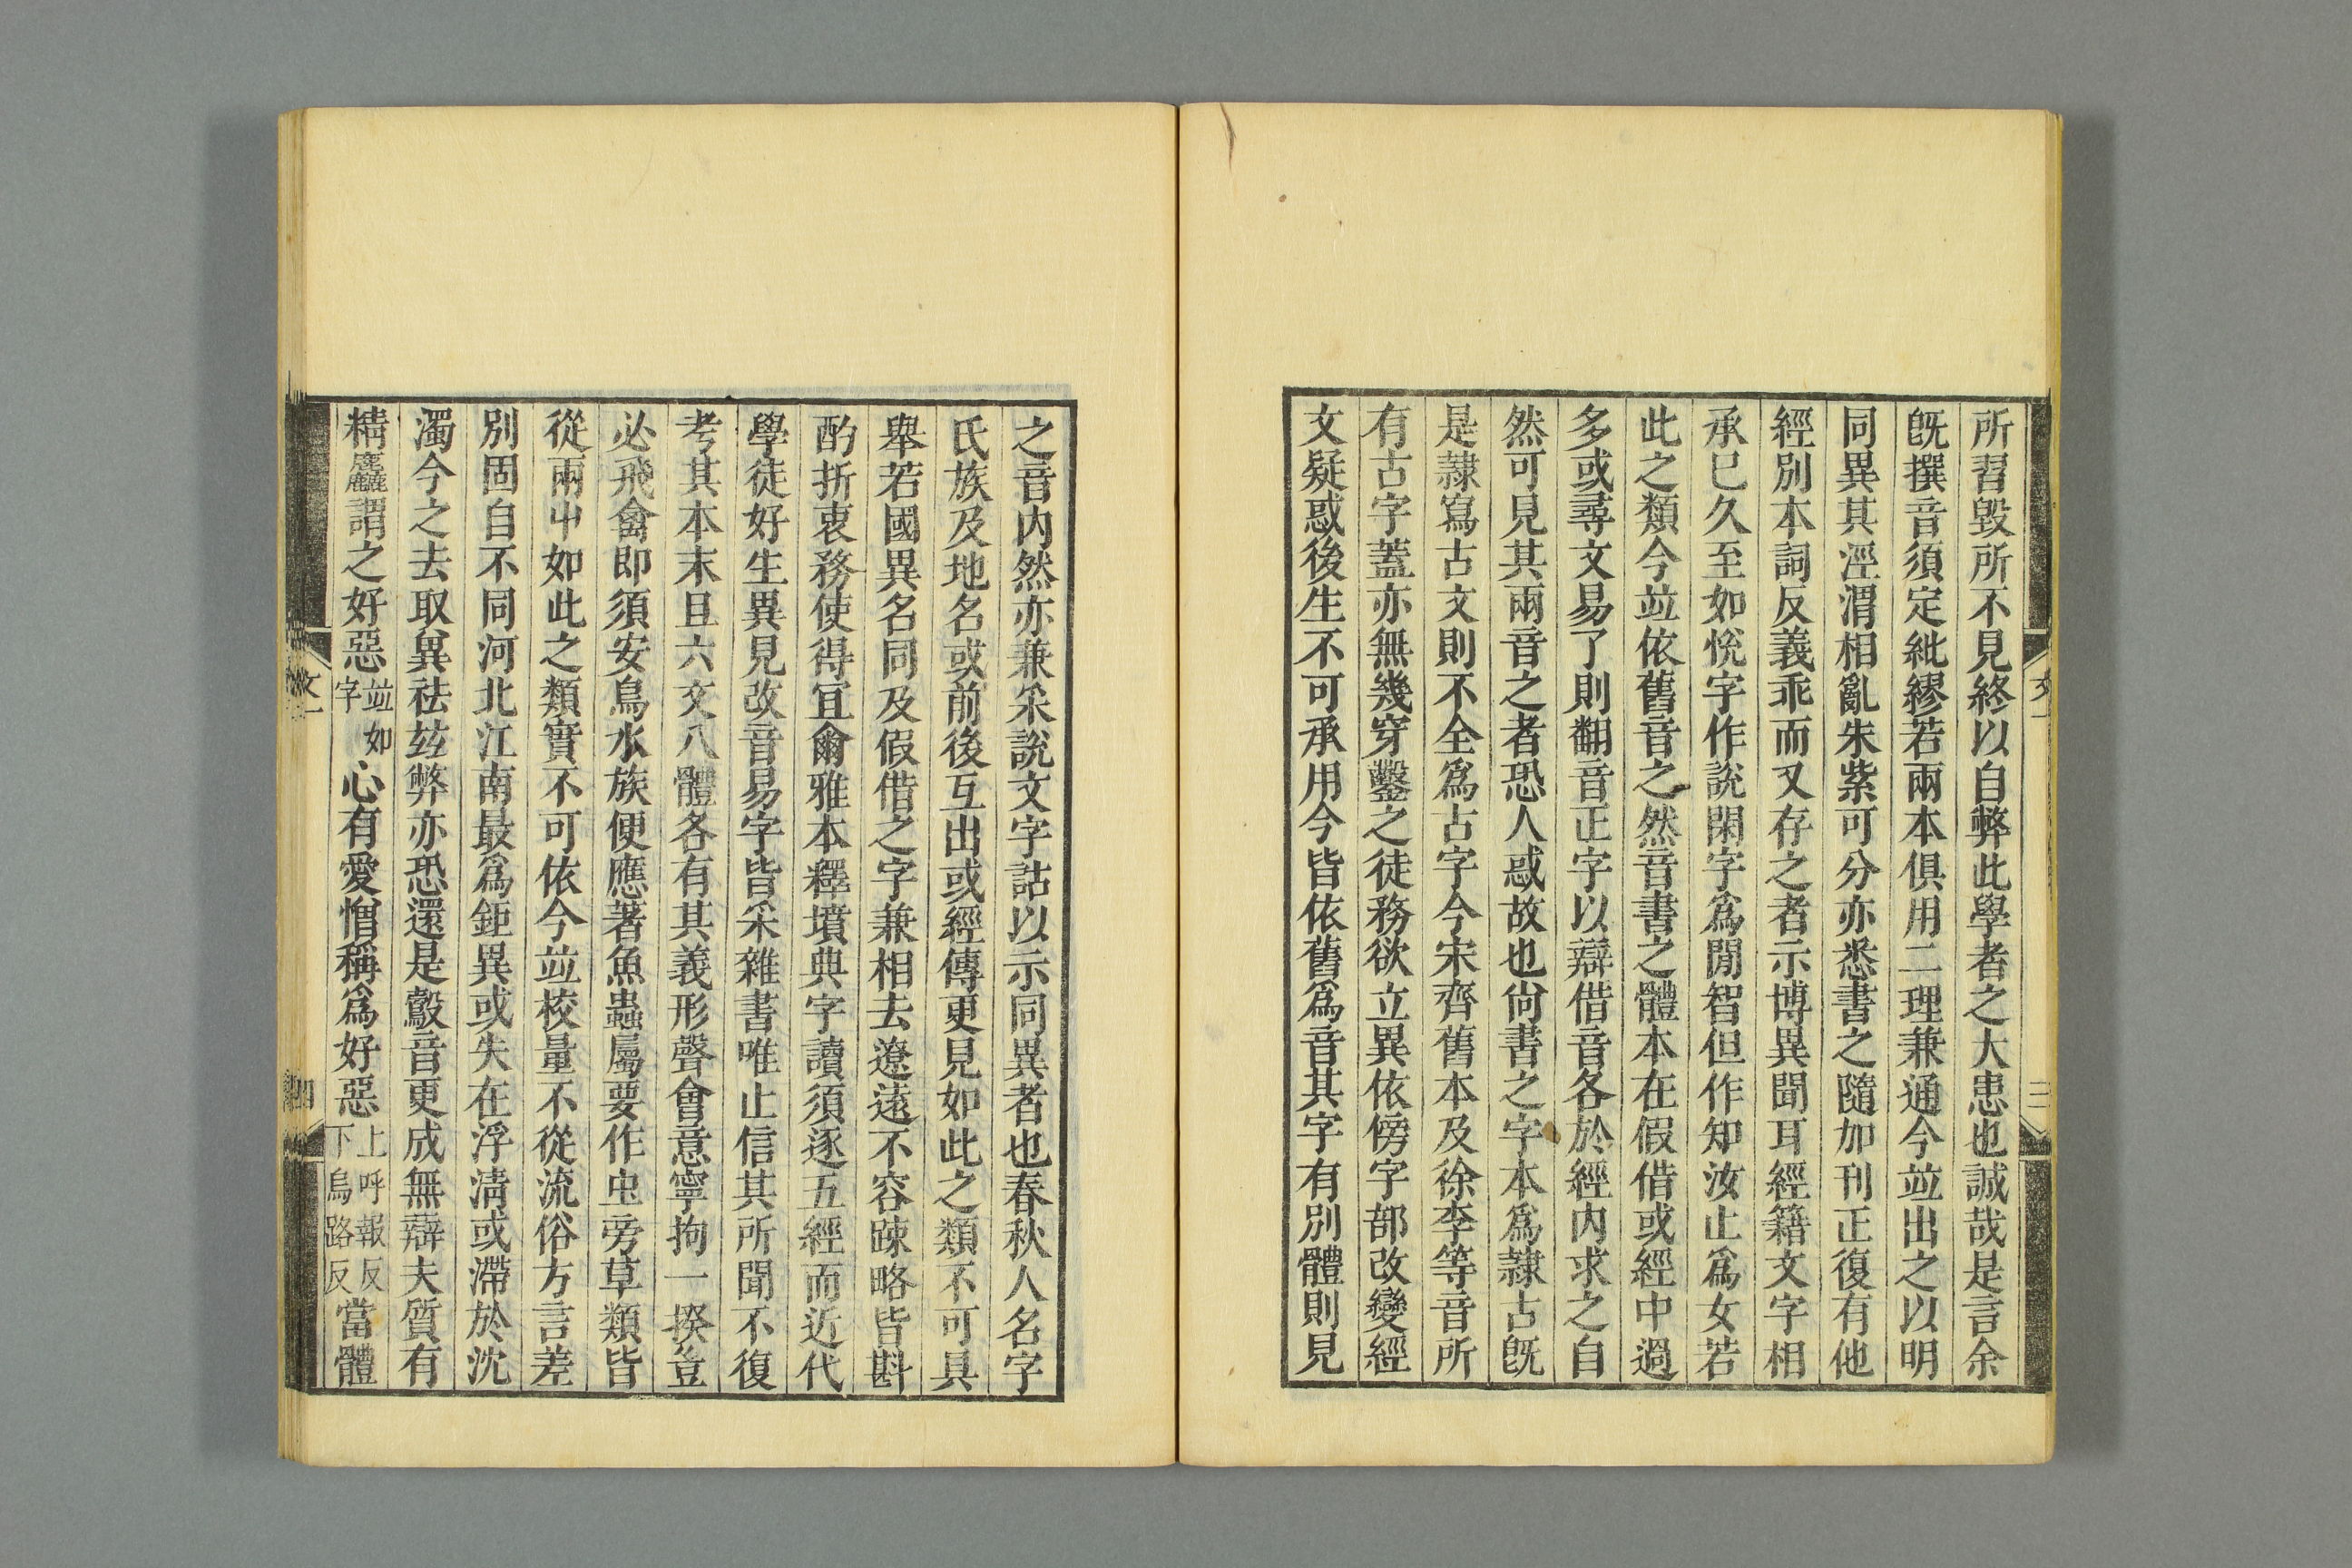 所習毀所不見終以自弊此學者之大患也誠哉是言余
旣撰音須定紕繆若兩本俱用二理兼通今竝出之以明
同異其涇渭相亂朱紫可分亦悉書之隨加刊正復有他
經別本詞反義乖而又存之者示博異聞耳經籍文字相
承已久至如悅字作說閑字爲閒智但作知汝止爲女若
此之類今竝依舊音之然音書之體本在假借或經中過
多或尋文易了則翻音正字以辯借音各於經內求之自
然可見其兩音之者恐人惑故也尙書之字本爲隷古旣
是隷寫古文則不全爲古字今宋齊舊本及徐李等音所
有古字蓋亦無幾穿鑿之徒務欲立異依傍字部改變經
文疑惑後生不可承用今皆依舊爲音其字有別體則見
之音內然亦兼采說文字詁以示同異者也春秋人名字
氏族及地名或前後互出或經傳更見如此之類不可具
舉若國異名同及假借之字兼相去遼遠不容疎略皆斟
酌折衷務使得宜爾雅本釋墳典字讀須逐五經而近代
學徒好生異見改音易字皆采雜書唯止信其所聞不復
考其本末且六文八體各有其義形聲會意寧拘一揆豈
必飛禽即須安鳥水族便應著魚蟲屬要作虫旁草類皆
從兩屮如此之類實不可依今竝校量不從流俗方言差
別固自不同河北江南最爲鉅異或失在浮淸或滯於沈
濁今之去取冀祛茲弊亦恐還是鷇音更成無辯夫質有
精麤謂之好惡竝如字心有愛憎稱爲好惡上呼報反下烏路反當體
文一
四